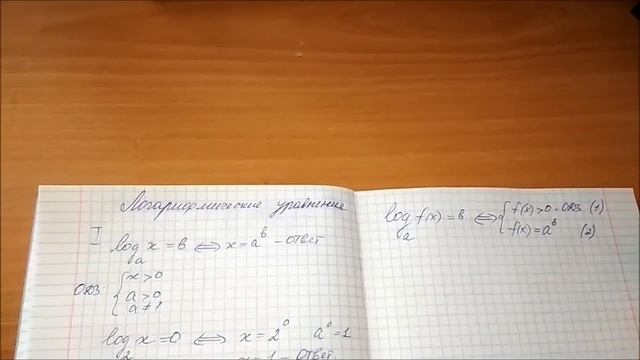 Логарифмические уравнения
I
log_a x = b ⇔ x = a^b – ответ
ОДЗ { x>0
a>0
a≠1
log_2 x = 0 ⇔ x = 2^0 a^0 = 1
x = 1 – ответ
log_a f(x) = b ⇔ { f(x)>0 – ОДЗ (1)
f(x) = a^b (2)